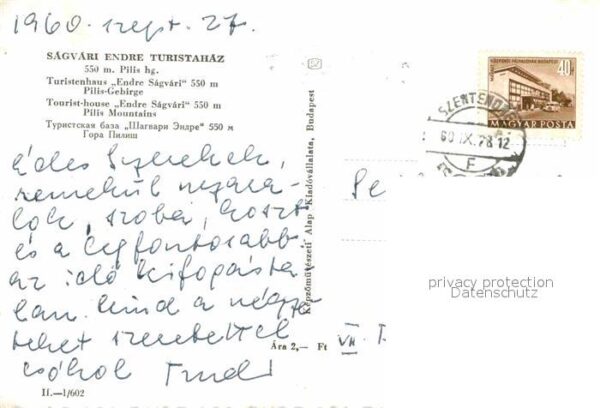 1960. szept. 27.
SÁGVÁRI ENDRE TURISTAHÁZ
550 m. Pilis hg.
Turistenhaus „Endre Ságvári" 550 m
Pilis-Gebirge
Tourist-house „Endre Ságvári" 550 m
Pilis Mountains
Туристская база „Шагвари Эндре" 550 м
Гора Пилиш
Édes Szerelek,
remekül nyara-
lok, szoba, koszt
és a legfontosabb
az idő kifogásta
lan. Mind a négye
teket szeretettel
csókol Trudi
II.—1/602
Képzőművészeti Alap Kiadóvállalata, Budapest
Ára 2,— Ft
40 f
MAGYAR POSTA
SZENTENDRE
60 IX. 28. 12
F
VII.
privacy protection
Datenschutz